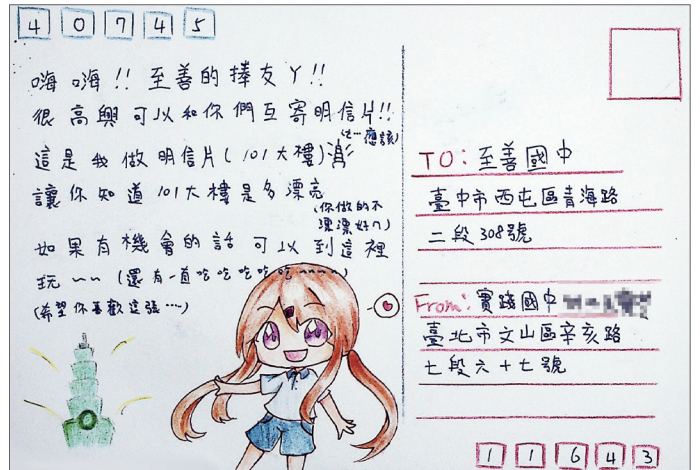 40745
嗨嗨!! 至善的捧友ㄚ!!
很高興可以和你們互寄明信片!!
應該)
這是我做明信片(101大樓)
讓你知道101大樓是多漂亮
(你做的不
漂漂好ㄇ)
如果有機會的話可以到這裡
玩~~(還有一直吃吃吃吃吃~~~~)
(希望你喜歡這張....)
TO: 至善國中
臺中市西屯區青海路
二段308號
From: 實踐國中
臺北市文山區辛亥路
七段六十七號
11643